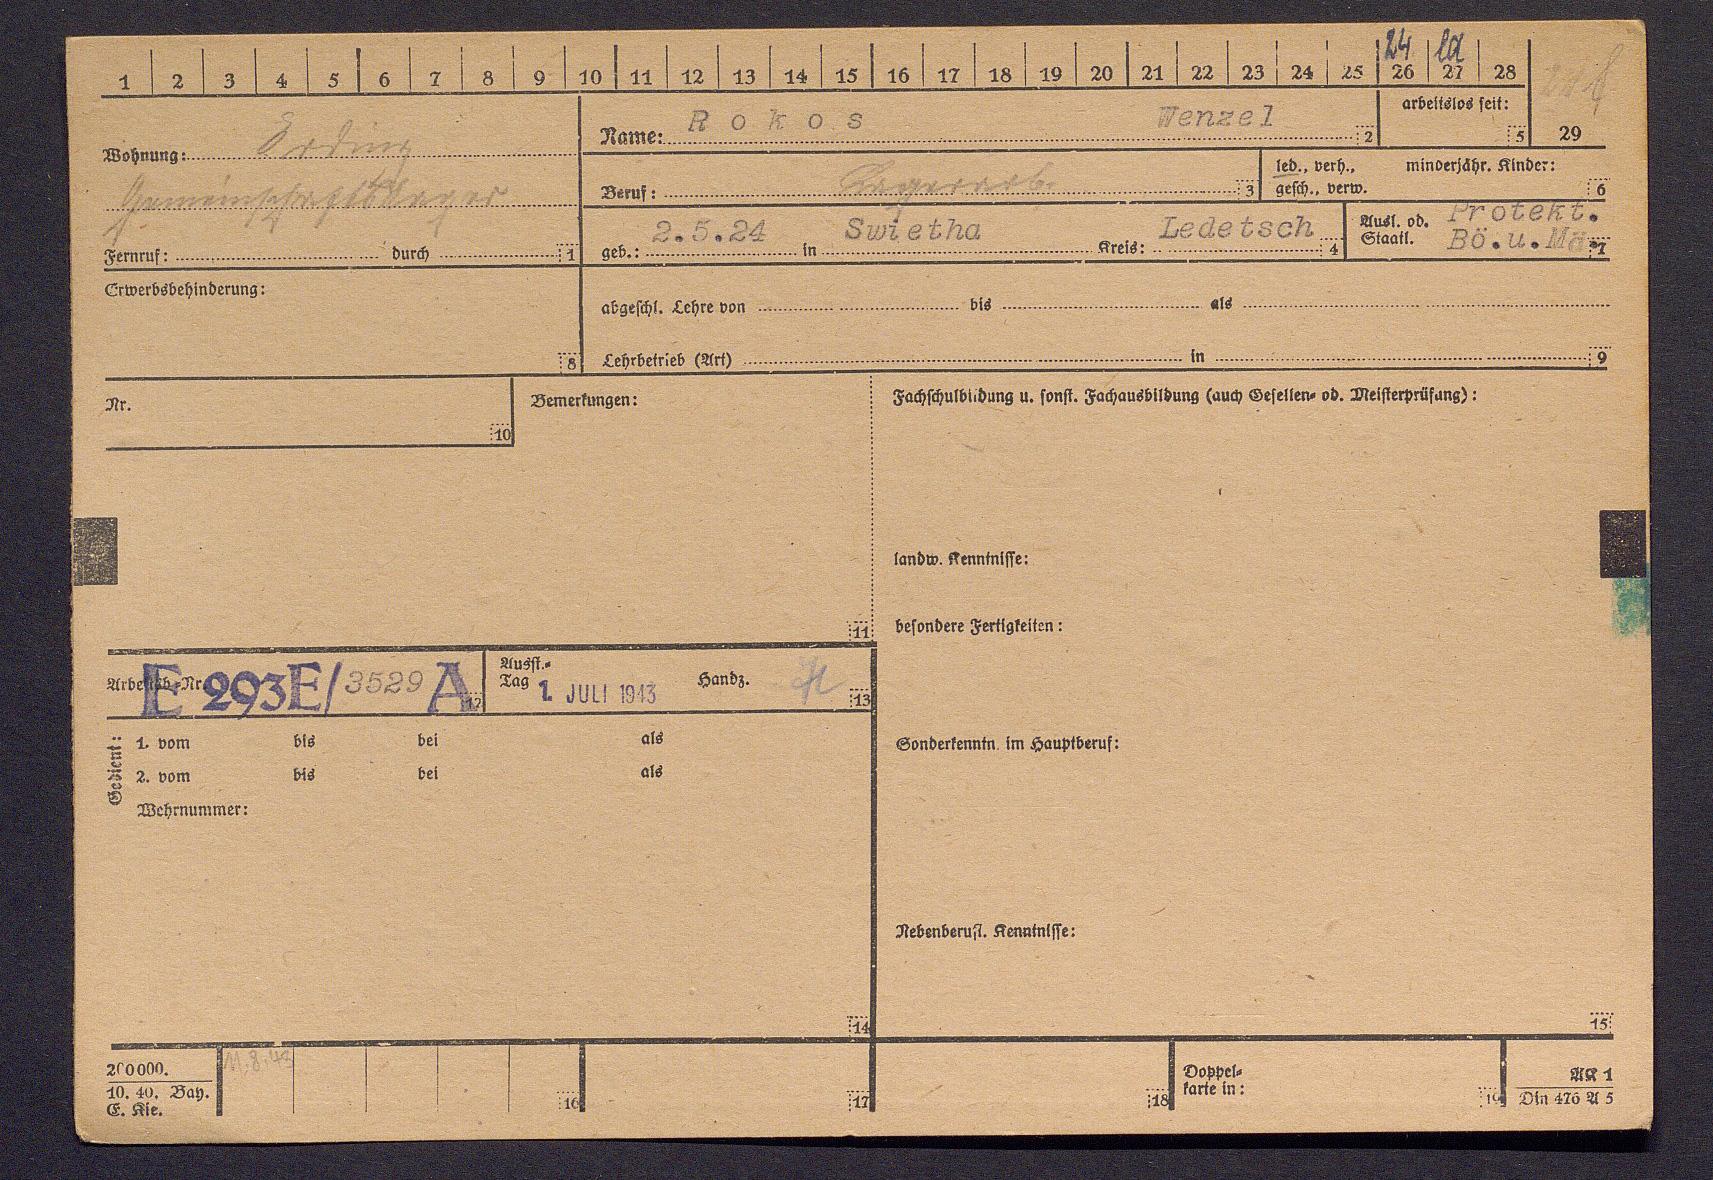 24 la
1 2 3 4 5 6 7 8 9 10 11 12 13 14 15 16 17 18 19 20 21 22 23 24 25 26 27 28
Wohnung: Erding
Gemeinschaftslager
Fernruf: durch 1
Name: Rokos Wenzel 2
arbeitslos seit: 5
29
Beruf: Lagerarb. 3
led., verh., minderjähr. Kinder:
gesch., verw. 6
geb.: 2.5.24 in Swietha Kreis: Ledetsch 4
Ausl. od. Protekt.
Staatl. Bö.u.Mä. 7
Erwerbsbehinderung:
8
abgeschl. Lehre von bis als
Lehrbetrieb (Art) in 9
Nr.
10
Bemerkungen:
11
Fachschulbildung u. sonst. Fachausbildung (auch Gesellen- od. Meisterprüfung):
landw. Kenntnisse:
besondere Fertigkeiten:
Arbeitsb.-Nr. E 293E/3529 A 12
Ausst.-
Tag 1. JULI 1943 Handz. 13
Gedient:
1. vom bis bei als
2. vom bis bei als
Wehrnummer:
14
Sonderkenntn. im Hauptberuf:
Nebenberufl. Kenntnisse:
15
200000.
10. 40. Bay.
E. Kie.
11.8.43
16
17
18
Doppel-
karte in: 19
AK 1
Din 476 A 5